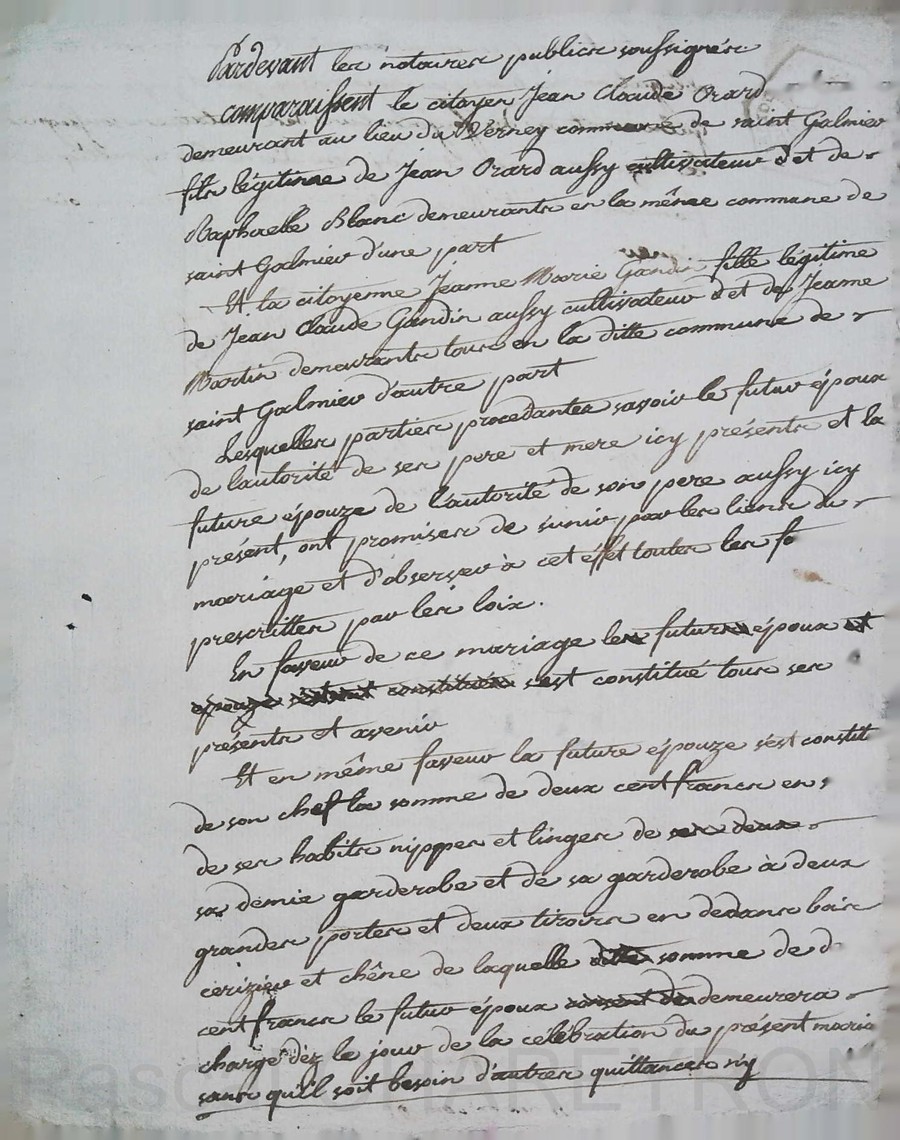 Pardevant les notaires publics soussignés
comparaissent le citoyen Jean Claude Orard
demeurant au lieu du Verney commune de saint Galmier
fils légitime de Jean Orard aussy cultivateur et de
Raphaelle Blanc demeurants en la même commune de
saint Galmier d'une part
Et la citoyenne Jeanne Marie Gandin fille légitime
de Jean Claude Gandin aussy cultivateur et de Jeanne
Martin demeurants tous en la ditte commune de
saint Galmier d'autre part
Lesquelles parties procedantes savoir le futur époux
de l'autorité de ses pere et mere icy présents et la
future épouze de l'autorité de son pere aussy icy
présent, ont promises de s'unir par les liens du
mariage et d'observer à cet effet toutes les fo
prescrittes par les loix.
En faveur de ce mariage le futur époux et
épouze constitués s'est constitué tous ses
présents et avenir
Et en même faveur la future épouze s'est constit
de son chef la somme de deux cent francs en
de ses habits nippes et linges de ses deux
sa demie garderobe et de sa garderobe à deux
grandes portes et deux tiroirs en dedans bois
cerizier et chêne de laquelle ditte somme de d
cent francs le futur époux demeurera
chargé dèz le jour de la célébration du présent maria
sans qu'il soit besoin d'autres quittances n'y
Pascal CHARETRON